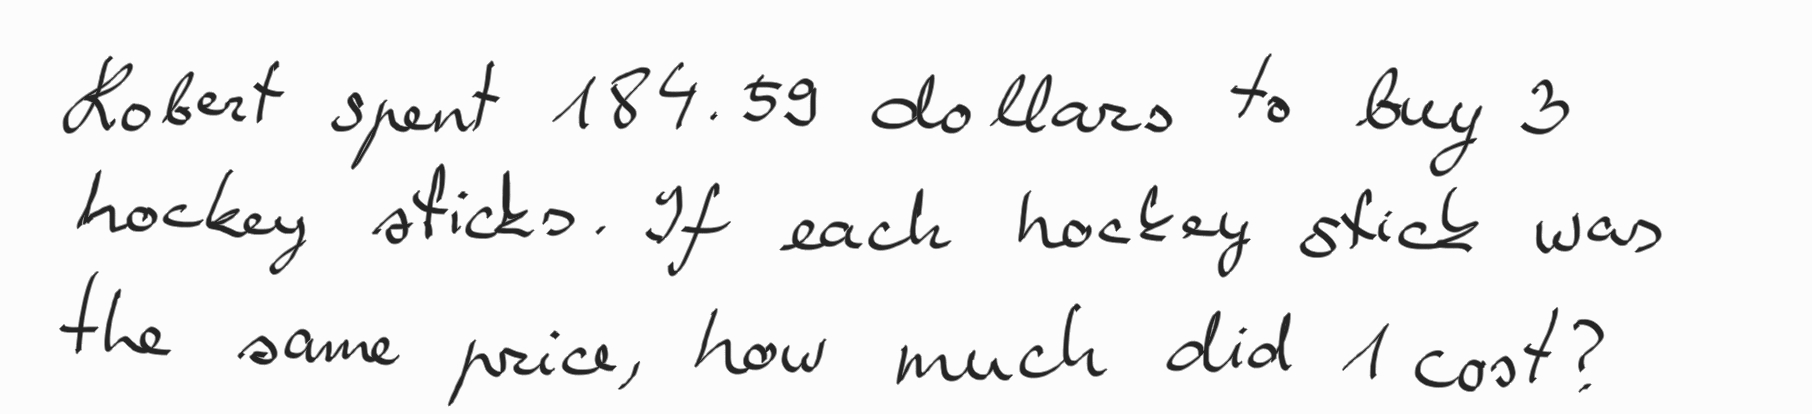 Robert spent 184.59 dollars to buy 3
hockey sticks. If each hockey stick was
the same price, how much did 1 cost?